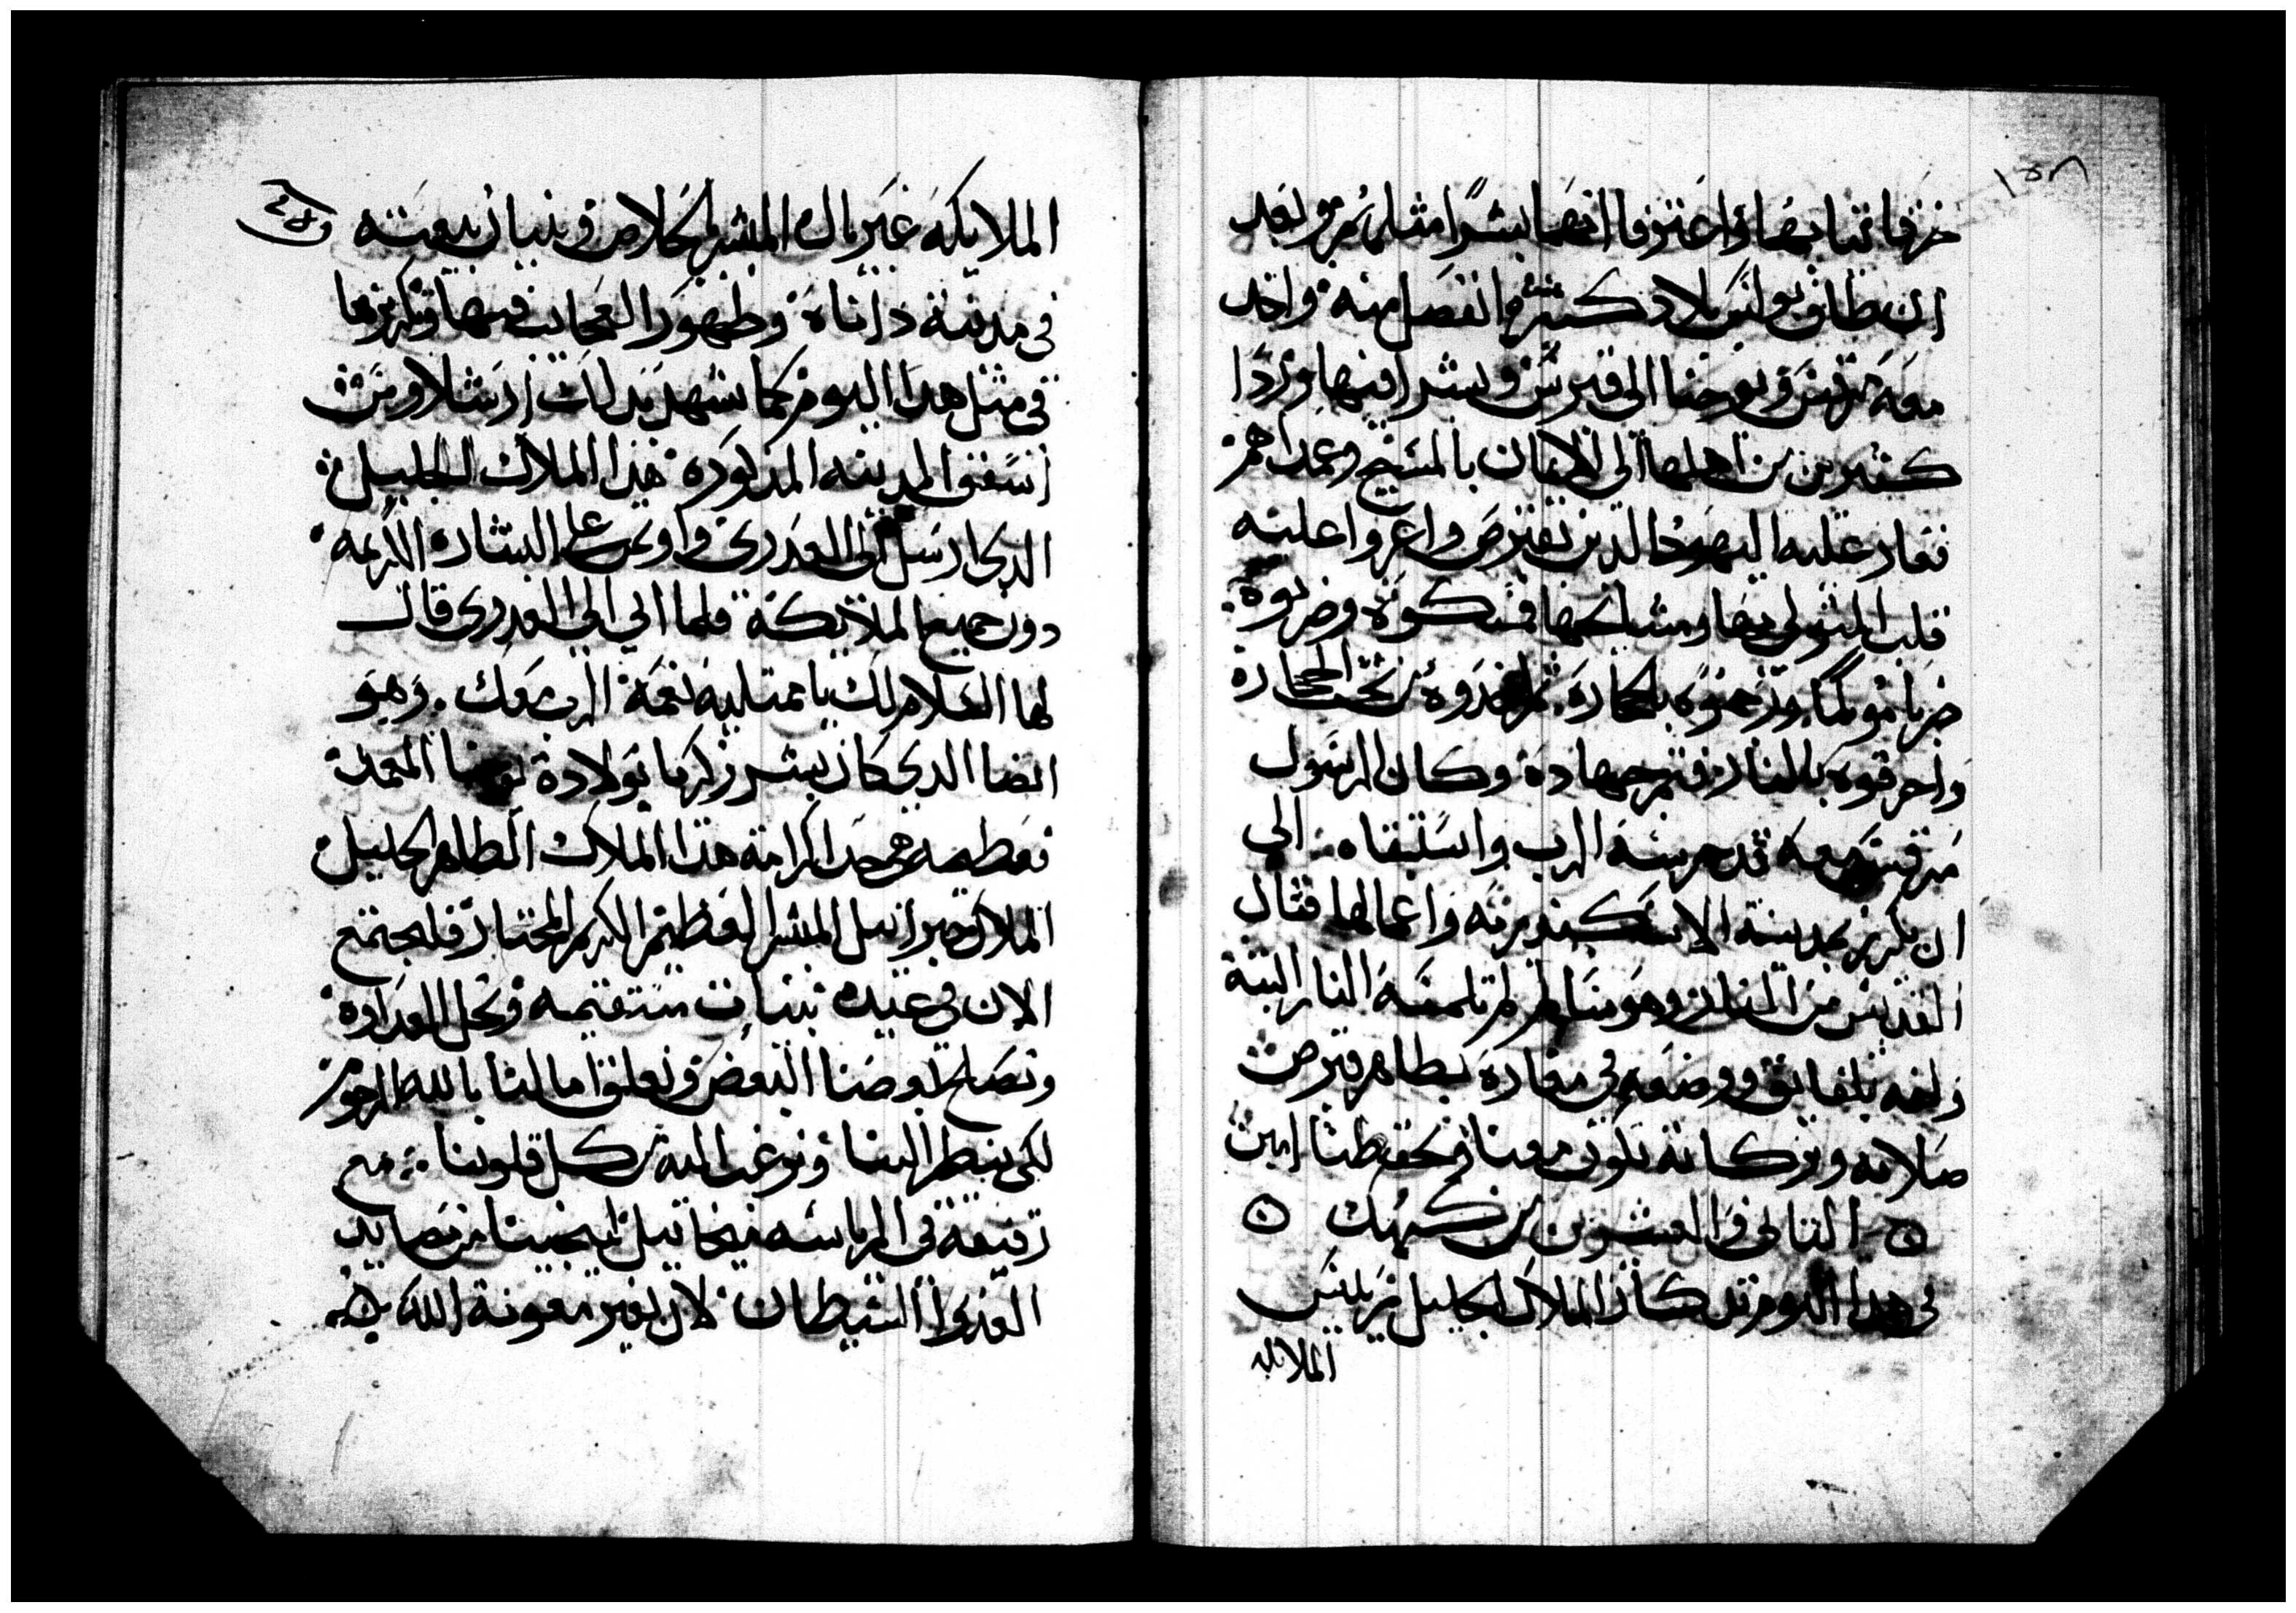 خرقا ثيابهما واعترفا انهما بشرًا مثلهم ومن بعد
ان طاف بولس بلاد كثيره انفصل منه واخد
معه مرقس ويوحنا الى قبرس وبشرا فيها وردا
كثيرين من اهلها الى الايمان بالمسيح وعمداهم
فغار عليه اليهود الدين بقبرص واغروا عليه
قلب المتولي بها ومشايخها فمسكوه وضربوه
ضربا مولمًا ورجموه بالحجاره ثم اخدوه تحت الحجاره
واحرقوه بالنار فتم جهاده وكان الرسول
مرقس معه قد حرسه الرب واستبقاه الى
ان يكرز بمدينة الاسكندريه واعمالها فشال
القديس من النار وهو سالم لم تلمسه النار البتة
ولفه بلفايف ووضعه في مغاره بظاهر قبرص
صلاته وبركاته تكون معنا وتحفظنا امين
التاني والعشرون من كيهك
في هدا اليوم تدكار الملاك الجليل رييس
الملايكه
الملايكه غبريال المبشر بالخلاص وبنيان بيعته
في مدينة داناة وظهور العجايب فيها وتكريزها
في مثل هدا اليوم كما يشهد بدلك ارشلاوس
اسقف المدينه المدكوره هدا الملاك الجليل
الدي ارسل الى العدري واوتمن على البشاره الكريمه
دون جميع الملايكة فلما اتي الى العدري قال
لها السلام لك يا ممتليه نعمة الرب معك وهو
ايضا الدي كان يبشر زكريا بولادة يوحنا المعمدان
فعظيمه هي جدا كرامة هدا الملاك الطاهر الجليل
الملاك جبراييل المبشر العظيم الكريم المختار فلنجتمع
الان في عيده بنيات مستقيمه ونحل العداوه
ونصالح بعضنا البعض ونعلق امالنا بالله الرحوم
لكي ينظر الينا ونرغب اليه من كل قلوبنا مع
رفيقه في الرياسه ميخاييل لينجينا من مصايد
العدو الشيطان لان بغير معونة الله